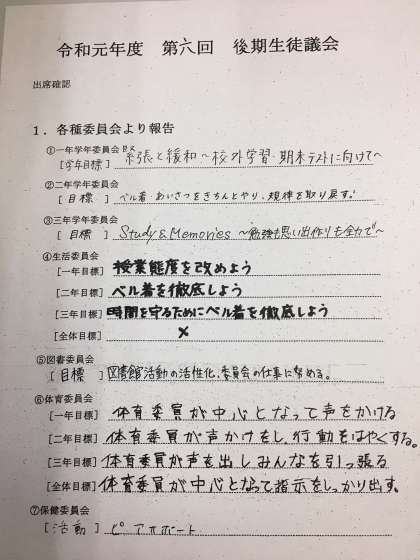 令和元年度 第六回 後期生徒議会
出席確認
1. 各種委員会より報告
①一年学年委員会
[学年目標] 緊張と緩和～校外学習・期末テストに向けて～
②二年学年委員会
[目標] ベル着・あいさつをきちんとやり、規律を取り戻す。
③三年学年委員会
[目標] Study & Memories ～勉強も思い出作りも全力で～
④生活委員会
[一年目標] 授業態度を改めよう
[二年目標] ベル着を徹底しよう
[三年目標] 時間を守るためにベル着を徹底しよう
[全体目標] ×
⑤図書委員会
[目標] 図書館活動の活性化、委員会の仕事に努める。
⑥体育委員会
[一年目標] 体育委員が中心となって声をかける
[二年目標] 体育委員が声かけをし、行動をはやくする。
[三年目標] 体育委員が声を出しみんなを引っ張る
[全体目標] 体育委員が中心となって指示をしっかり出す。
⑦保健委員会
[活動] ピアサポート